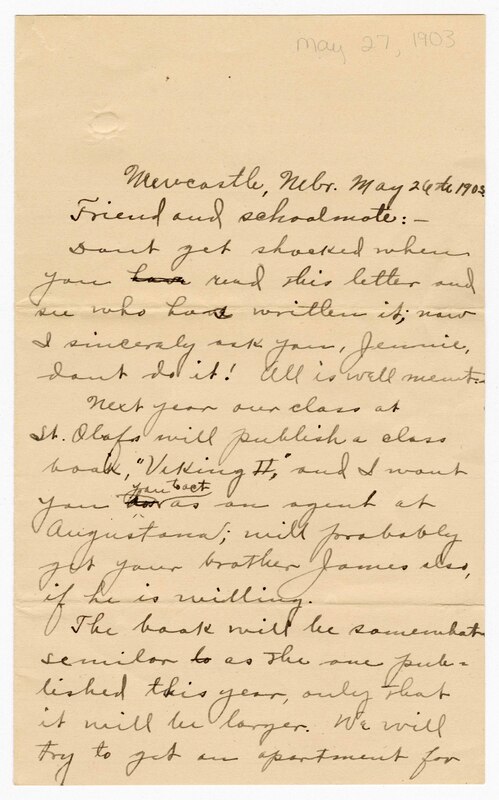 May 27, 1903
Newcastle, Nebr. May 26th 1903
Friend and schoolmate:-
Dont get shocked when
you have read this letter and
see who has written it; now
I sincerely ask you, Jennie,
dont do it! All is well ment.-
Next year our class at
St. Olafs will publish a class
book, "Viking II," and I want
you to act
you as an agent at
Augustana; will probably
get your brother James also,
if he is willing.
The book will be somewhat
similar to as the one pub=
lished this year, only that
it will be larger. We will
try to get an apartment for